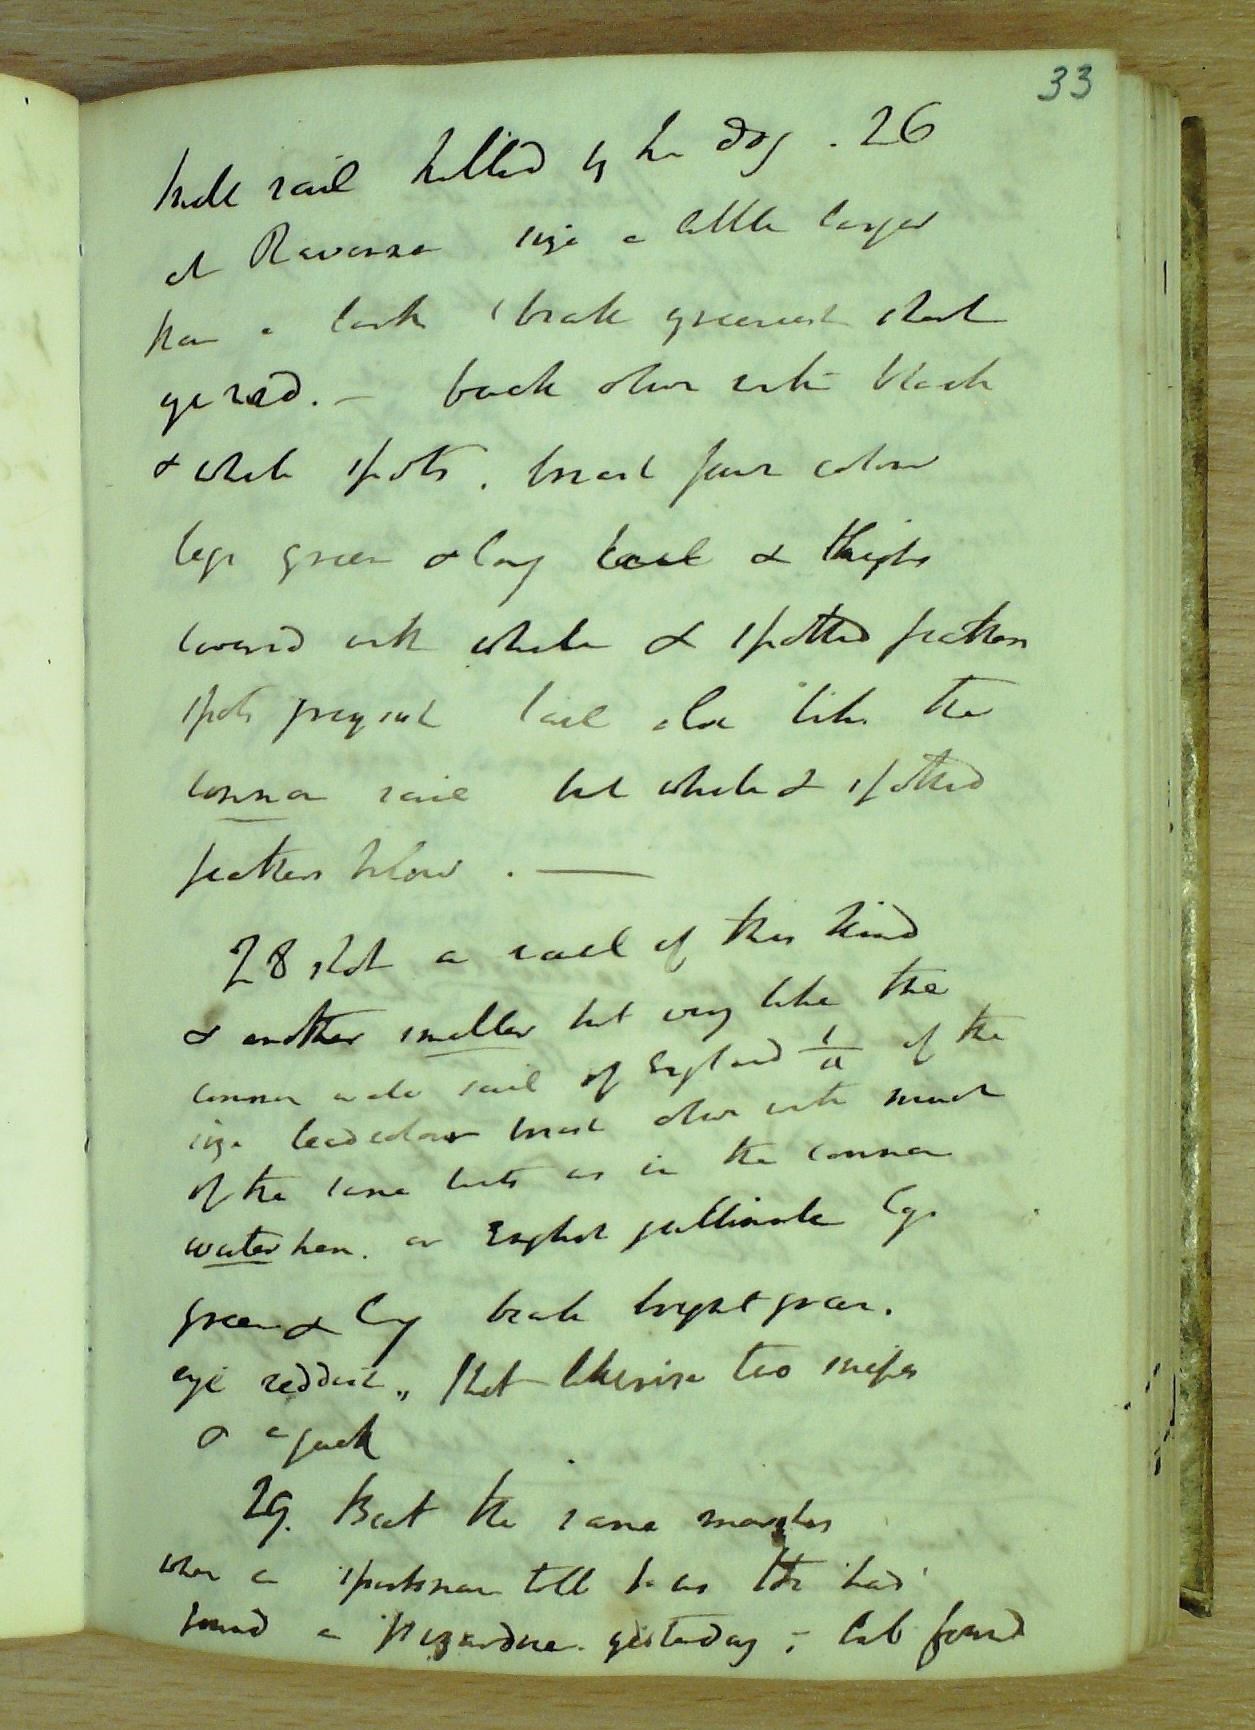 33
little rail killed by the dog . 26
at Ravenna size a little larger
than a lark beak greenish short
eye red. — back olive with black
& white spots . breast fawn colour
legs green & long tail & thighs
covered with white & spotted feathers
spots frequent tail also like the
common rail but white & spotted
feathers below . —
28 shot a rail of this kind
& another smaller but very like the
common water rail of England of the
size lead colour breast olive with much
of the same tints as in the common
water hen. or English gallinule legs
green & long beak bright green.
eye reddish, Shot likewise two snipes
& a jack
29. Beat the same marshes
when a sportsman told us he had
found a yesterday ; but found